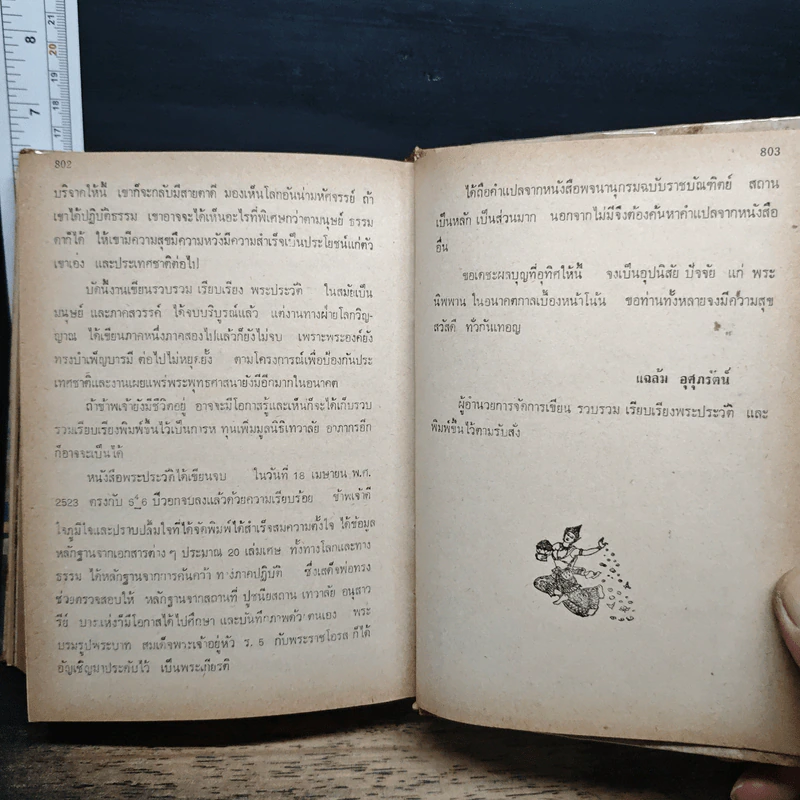 802
บริจาคให้นี้ เขาก็จะกลับมีสายตาดี มองเห็นโลกอันน่ามหัศจรรย์ ถ้า
เขาได้ปฏิบัติธรรม เขาอาจจะได้เห็นอะไรที่พิเศษกว่าตามนุษย์ ธรรม
ดาก็ได้ ให้เขามีความสุขมีความหวังมีความสำเร็จเป็นประโยชน์แก่ตัว
เขาเอง และประเทศชาติต่อไป
บัดนี้งานเขียนรวบรวม เรียบเรียง พระประวัติ ในสมัยเป็น
มนุษย์ และภาคสวรรค์ ได้จบบริบูรณ์แล้ว แต่งานทางฝ่ายโลกวิญ-
ญาณ ได้เขียนภาคหนึ่งภาคสองไปแล้วก็ยังไม่จบ เพราะพระองค์ยัง
ทรงบำเพ็ญบารมี ต่อไปไม่หยุดยั้ง ตามโครงการเพื่อป้องกันประ
เทศชาติและงานเผยแพร่พระพุทธศาสนายังมีอีกมากในอนาคต
ถ้าข้าพเจ้ายังมีชีวิตอยู่ อาจจะมีโอกาสรู้และเห็นก็จะได้เก็บรวบ
รวมเรียบเรียงพิมพ์ขึ้นไว้เป็นการห ทุนเพิ่มมูลนิธิเทวาลัย อาภากรอีก
ก็อาจจะเป็นได้
หนังสือพระประวัติได้เขียนจบ ในวันที่ 18 เมษายน พ.ศ.
2523 ตรงกับ 5 4 6 ปีวอกจบลงแล้วด้วยความเรียบร้อย ข้าพเจ้าดี
ใจภูมิใจและปราบปลื้มใจที่ได้จัดพิมพ์ได้สำเร็จสมความตั้งใจ ได้ข้อมูล
หลักฐานจากเอกสารต่าง ๆ ประมาณ 20 เล่มเศษ ทั้งทางโลกและทาง
ธรรม ได้หลักฐานจากการค้นคว้า ทางภาคปฏิบัติ ซึ่งเสด็จพ่อทรง
ช่วยตรวจสอบให้ หลักฐานจากสถานที่ ปูชนียสถาน เทวาลัย อนุสาว
รีย์ บางแห่งก็มีโอกาสได้ไปศึกษา และบันทึกภาพด้วยตนเอง พระ
บรมรูปพระบาท สมเด็จพระเจ้าอยู่หัว ร. 5 กับพระราชโอรส ก็ได้
อัญเชิญมาประดับไว้ เป็นพระเกียรติ
803
ได้ถือคำแปลจากหนังสือพจนานุกรมฉบับราชบัณฑิตย์ สถาน
เป็นหลัก เป็นส่วนมาก นอกจากไม่มีจึงต้องค้นหาคำแปลจากหนังสือ
อื่น
ขอเดชะผลบุญที่อุทิศให้นี้ จงเป็นอุปนิสัย ปัจจัย แก่ พระ
นิพพาน ในอนาคตกาลเบื้องหน้าโน้น ขอท่านทั้งหลายจงมีความสุข
สวัสดี ทั่วกันเทอญ
แฉล้ม อุศุภรัตน์
ผู้อำนวยการจัดการเขียน รวบรวม เรียบเรียงพระประวัติ และ
พิมพ์ขึ้นไว้ตามรับสั่ง
8
7
21
20
19
18
17